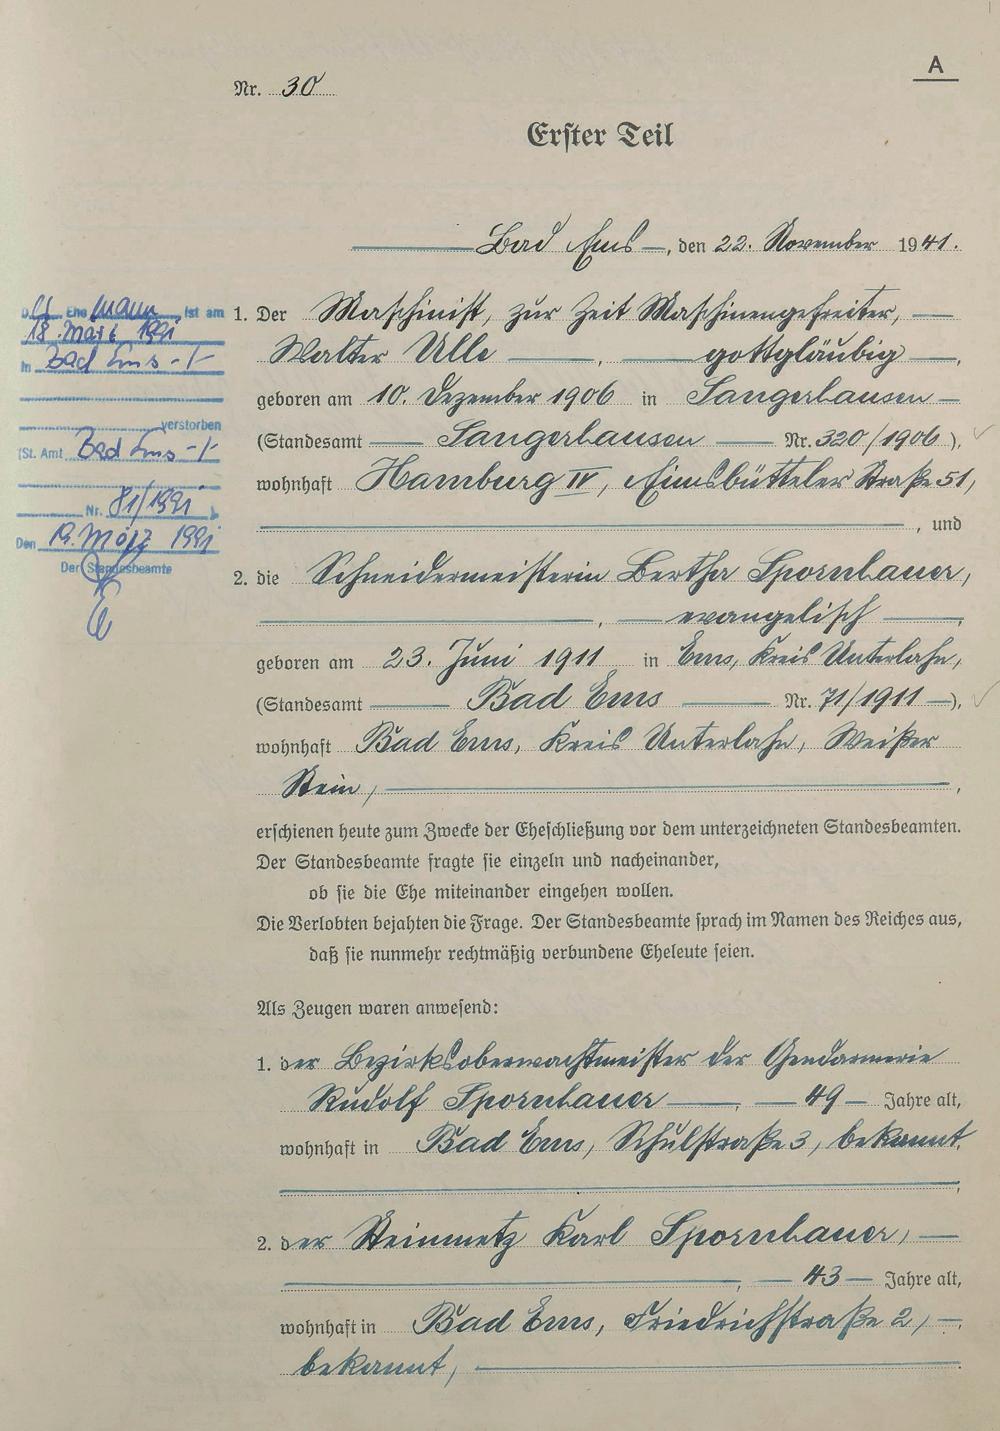 A
Nr. 30
Erster Teil
Bad Ems, den 22. November 1941.
1. Der Maschinist, zur Zeit Maschinengefreiter,
Walter Ulle, gottgläubig,
geboren am 10. Dezember 1906 in Sangerhausen
(Standesamt Sangerhausen Nr. 320/1906),
wohnhaft Hamburg IV, Eimsbütteler Straße 51,
, und
2. die Schneidermeisterin Bertha Spornhauer,
, evangelisch,
geboren am 23. Juni 1911 in Ems, Kreis Unterlahn,
(Standesamt Bad Ems Nr. 71/1911),
wohnhaft Bad Ems, Kreis Unterlahn, Weißer
Stein,
erschienen heute zum Zwecke der Eheschließung vor dem unterzeichneten Standesbeamten.
Der Standesbeamte fragte sie einzeln und nacheinander,
ob sie die Ehe miteinander eingehen wollen.
Die Verlobten bejahten die Frage. Der Standesbeamte sprach im Namen des Reiches aus,
daß sie nunmehr rechtmäßig verbundene Eheleute seien.
Als Zeugen waren anwesend:
1. der Bezirksoberwachtmeister der Gendarmerie
Rudolf Spornhauer, 49 Jahre alt,
wohnhaft in Bad Ems, Schulstraße 3, bekannt,
2. der Steinmetz Karl Spornhauer,
, 43 Jahre alt,
wohnhaft in Bad Ems, Friedrichstraße 2,
bekannt,
Der Ehemann ist am
18. März 1991
in Bad Ems
verstorben
(St. Amt Bad Ems
Nr. 81/1991)
Den 19. März 1991
Der Standesbeamte